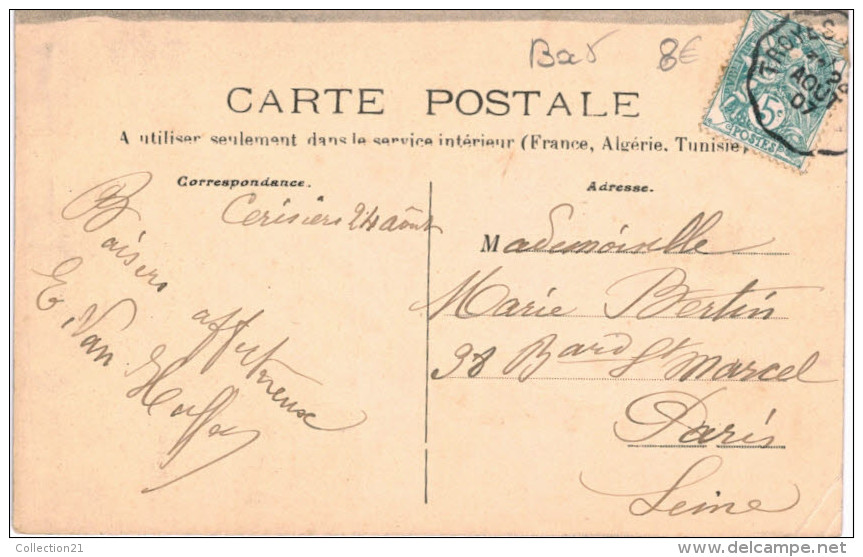 Bas 8€
CARTE POSTALE
A utiliser seulement dans le service intérieur (France, Algérie, Tunisie)
Correspondance.
Adresse.
Cerisiers 24 août
Baisers affectueux
E. Van
Mademoiselle
Marie Bertin
38 Bard St Marcel
Paris
Seine
TROYES
AOUT
07
5c
POSTES
Collection21
http://www.delcampe.net